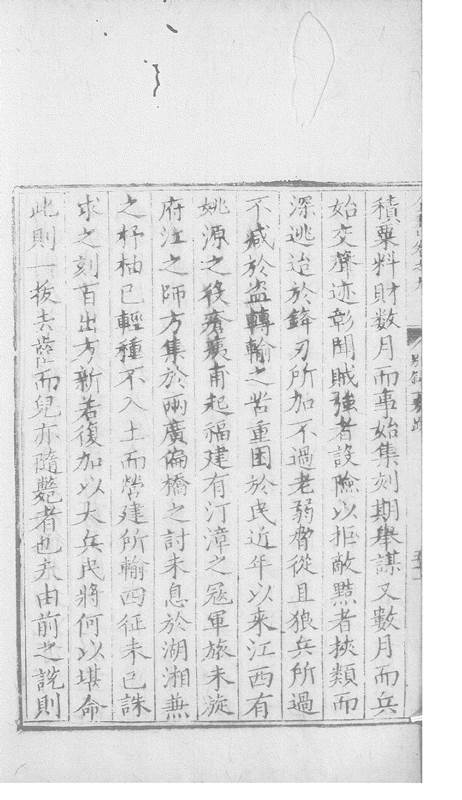 積粟料財数月而事始集刻期舉謀又数月而兵
始交聲迹彰聞賊強者設險以拒敵黠者挾類而
深逃迨於鋒刃所加不過老弱脅從且狼兵所過
不减於盗轉輸之苦重困於民近年以来江西有
姚源之役瘡痍甫起福建有汀漳之冦軍旅未旋
府江之師方集於兩廣偏橋之討未息於湖湘兼
之杼柚已輕種不入土而營建所輸四征未已誅
求之刻百出方新若復加以大兵民將何以堪命
此則一拔去𧏾而兒亦隨斃者也夫由前之説則